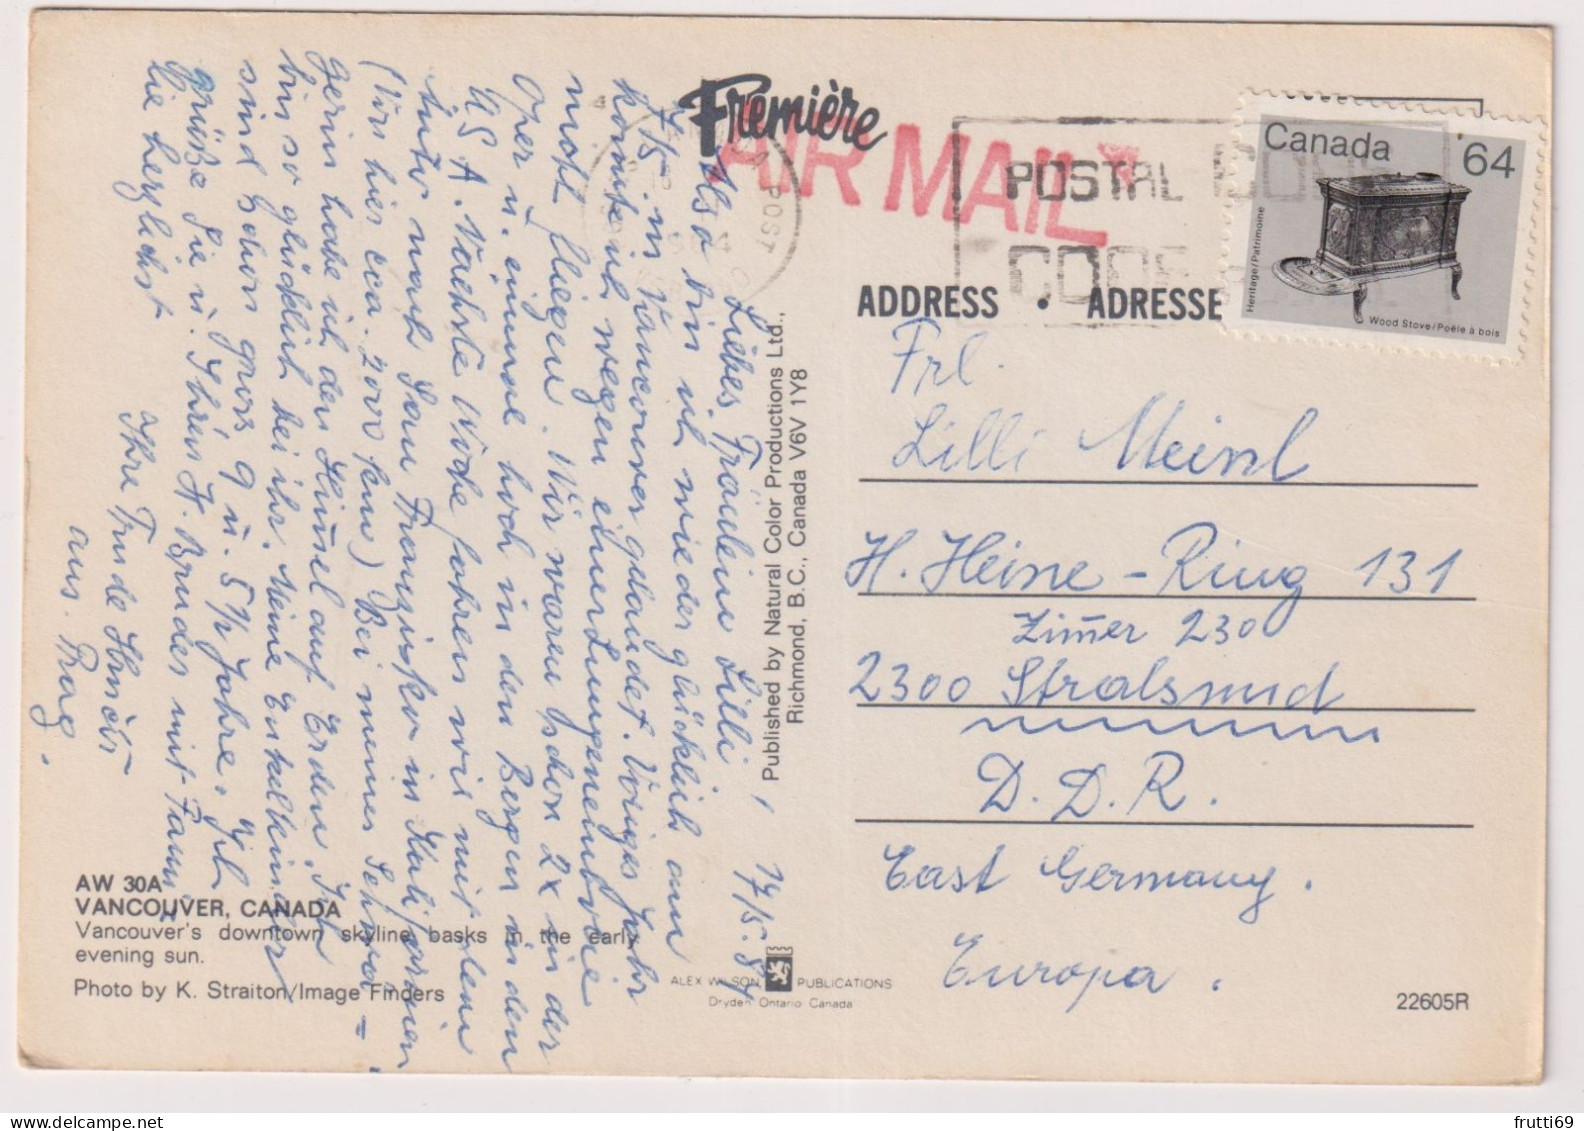 Première
AIR MAIL
POSTAL CODE
CODE
POST
Canada 64
Heritage/Patrimoine
Wood Stove/Poêle à bois
ADDRESS · ADRESSE
Frl.
Lilli Meinl
H. Heine-Ring 131
Zim̄er 230
2300 Stralsund
D.D.R.
East Germany.
Europa.
17/5.84
Liebes Fräulein Lilli!
Also bin ich wieder glücklich am
7/5 in Vancouver gelandet. Voriges Jahr
konnte ich wegen einer Lungenembolie
nicht fliegen. Wir waren schon 2x in der
Oper u. einmal hoch in den Bergen in den
USA. Nächste Woche fahren wir mit dem
Auto nach San Franzisko in Kalifornien
(von hier cca. 2000 km) Bei meiner Schwie=
gerin habe ich den Him̄el auf Erden. Ich
bin so glücklich bei ihr. Meine Enkelkinder
sind schon gross 9 u. 5½ Jahre. Ich
grüße Sie u. Ihren H. Bruder mit Fam.
die herzlichst
Ihre Trude
aus Prag.
Published by Natural Color Productions Ltd.,
Richmond, B.C., Canada V6V 1Y8
AW 30A
VANCOUVER, CANADA
Vancouver's downtown skyline basks in the early
evening sun.
Photo by K. Straiton/Image Finders
ALEX WILSON PUBLICATIONS
Dryden Ontario Canada
22605R
frutti69